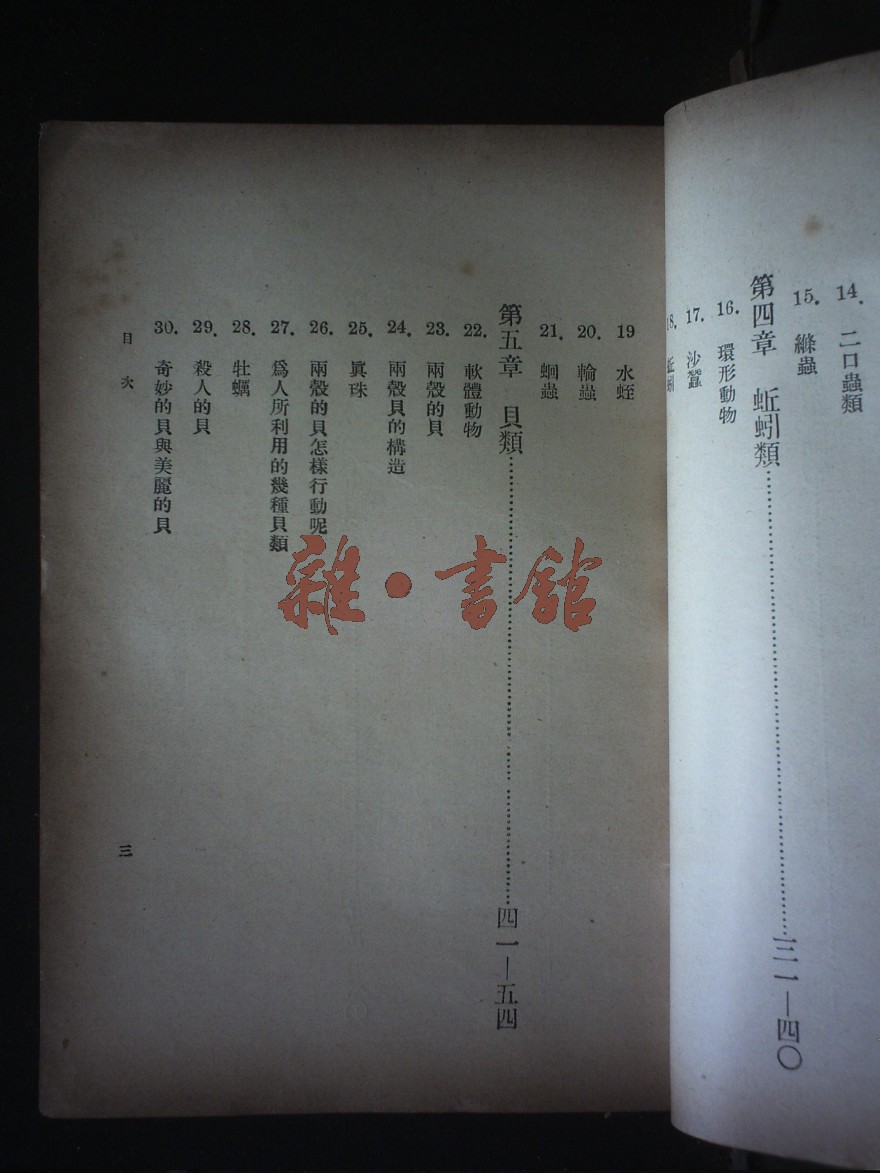 14. 二口蟲類
15. 絛蟲
第四章 蚯蚓類 三一—四〇
16. 環形動物
17. 沙蠶
18. 蚯蚓
19 水蛭
20. 輪蟲
21. 蛔蟲
第五章 貝類 四一—五四
22. 軟體動物
23. 兩殼的貝
24. 兩殼貝的構造
25. 眞珠
26. 兩殼的貝怎樣行動呢
27. 爲人所利用的幾種貝類
28. 牡蠣
29. 殺人的貝
30. 奇妙的貝與美麗的貝
目次
三
雜·書館